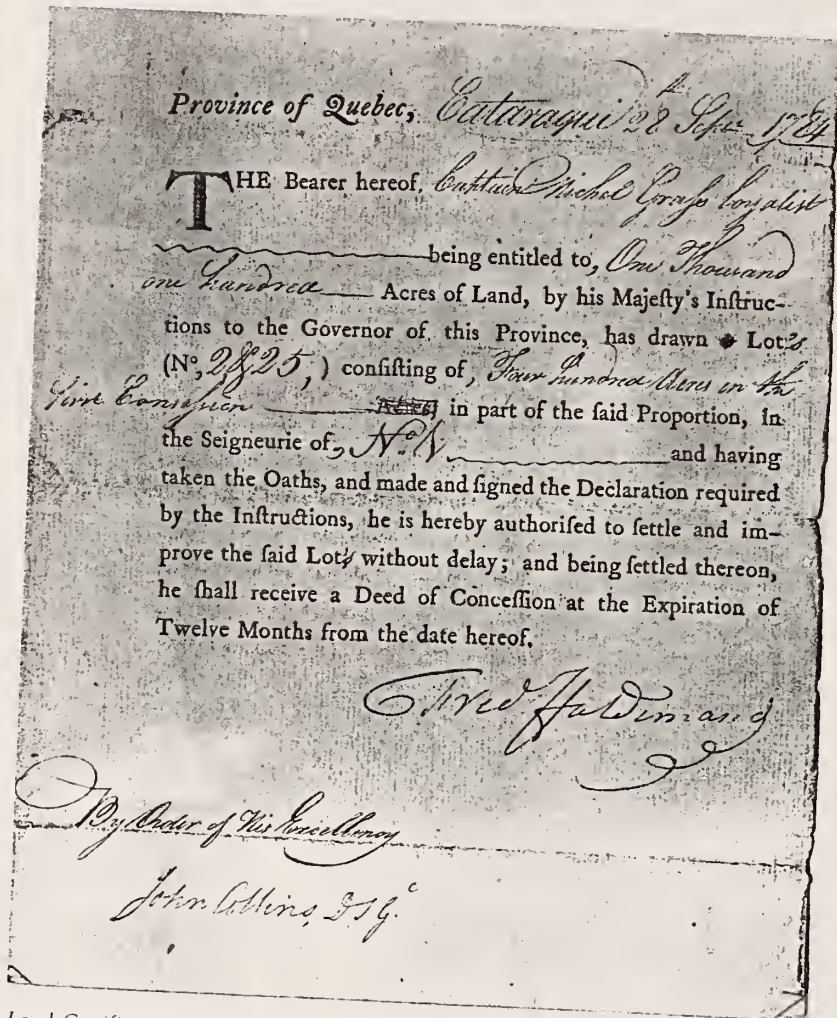 Province of Quebec, Cataraqui 28th Septr 1784
THE Bearer hereof, Captain Michel Grass loyalist
being entitled to, One Thousand
one hundred Acres of Land, by his Majeſty's Inſtruc-
tions to the Governor of this Province, has drawn Lot's
(No, 25,) conſiſting of, Four hundred Acres in the
firſt Conceſſion Acres, in part of the ſaid Proportion, In
the Seigneurie of, No. and having
taken the Oaths, and made and ſigned the Declaration required
by the Inſtructions, he is hereby authoriſed to ſettle and im-
prove the ſaid Lot's without delay; and being ſettled thereon,
he ſhall receive a Deed of Conceſſion at the Expiration of
Twelve Months from the date hereof.
Fred Haldimand
By Order of His Excellency
John Collins, D S G.